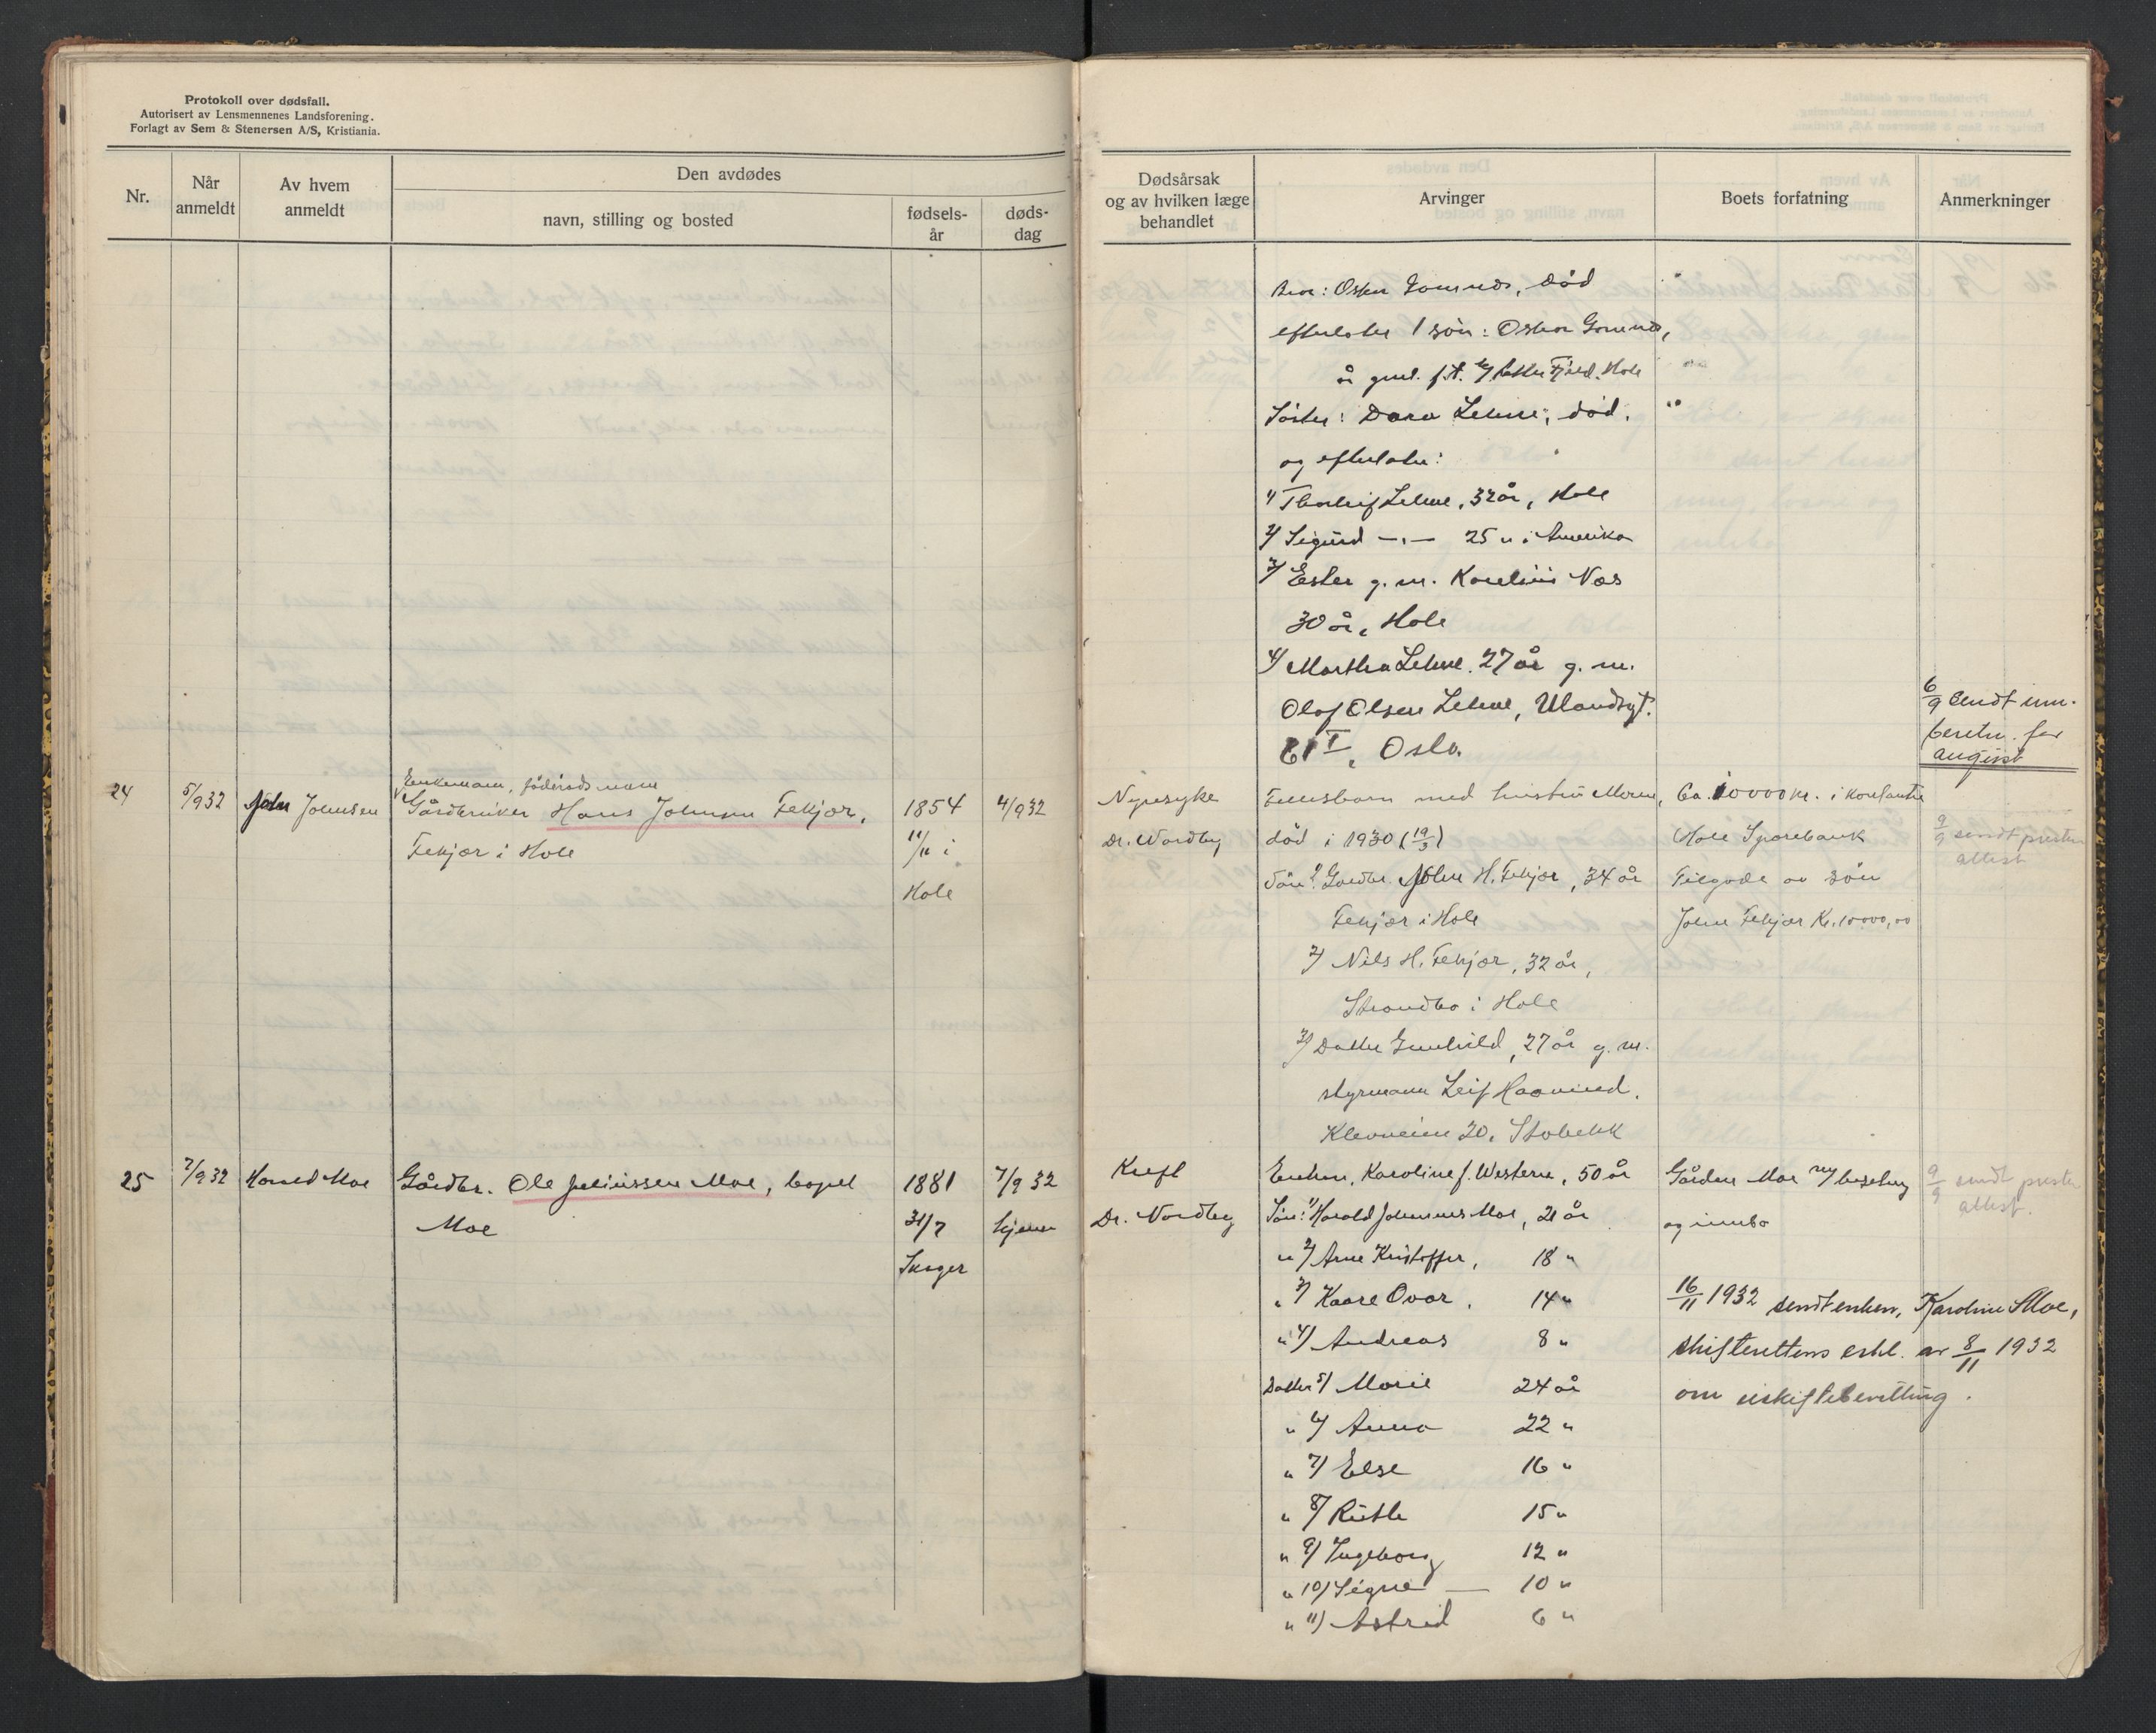 Protokoll over dødsfall.
Autorisert av Lensmennenes Landsforening.
Forlagt av Sem & Stenersen A/S, Kristiania.
Nr.
Når anmeldt
Av hvem anmeldt
Den avdødes
navn, stilling og bosted
fødselsår
dødsdag
Dødsårsak og av hvilken læge behandlet
Arvinger
Boets forfatning
Anmerkninger
Bror: Oskar Gomnes, död
efterlater 1 sön: Oskar Gomnes,
år gml. f.t.
Hole
Söster: Dara Lehne, död.
og efterlater:
1/ Thorleif Lehne, 32 år, Hole
2/ Sigurd —„— 25 „ i Amerika
3/ Ester g.m. Karelius Næs
30 år, Hole
4/ Martha Lehne. 27 år g.m.
Olaf Olsen Lehne,
61 I, Oslo.
6/9 sendt innberetn. for august
24
5/9 32
John Johnsen
Enkemann, föderådsmann
Gårdbruker Hans Johnsen Fekjær,
Fekjær i Hole
1854
11/11 i
Hole
4/9 32
Nyresyke
Dr. Nordby
Fellesbarn med hustru Maren,
död i 1930 (19/3)
Sön: 1/ Gardbr. John H. Fekjær, 34 år
Fekjær i Hole
2/ Nils H. Fekjær, 32 år,
Strandbo i Hole
3/ Datter Gunhild, 27 år g.m.
styrmann Leif Haavind.
Klevveien 20. Stabekk
Ca. 10000 kr. i kontanter
Hole Sparebank
Tilgode av sön
John Fekjær Kr. 10000,00
9/9 sendt presten
attest
25
7/9 32
Harald Moe
Gårdbr. Ole Juliussen Moe, bopel
Moe
1881
31/7
Skoger
7/9 32
hjemme
Kreft
Dr. Nordby
Enken, Karoline f. Western, 50 år
Sön: 1/ Harald Johannes Moe, 21 år
„ 2/ Arne Kristoffer, 18 „
„ 3/ Kaare Ovar, 14 „
„ 4/ Andreas 8 „
Datter 5/ Marie 24 år
„ 6/ Anna 22 „
„ 7/ Else 16 „
„ 8/ Ruth 15 „
„ 9/ Ingeborg 12 „
„ 10/ Signe — 10 „
„ 11/ Astrid 6 „
Gården Moe m/ besetning
og innbo
9/9 sendt presten
attest.
16/11 1932 sendt enken, Karoline Moe,
skifterettens erkl. av 8/11 1932
om uskiftebevilling.